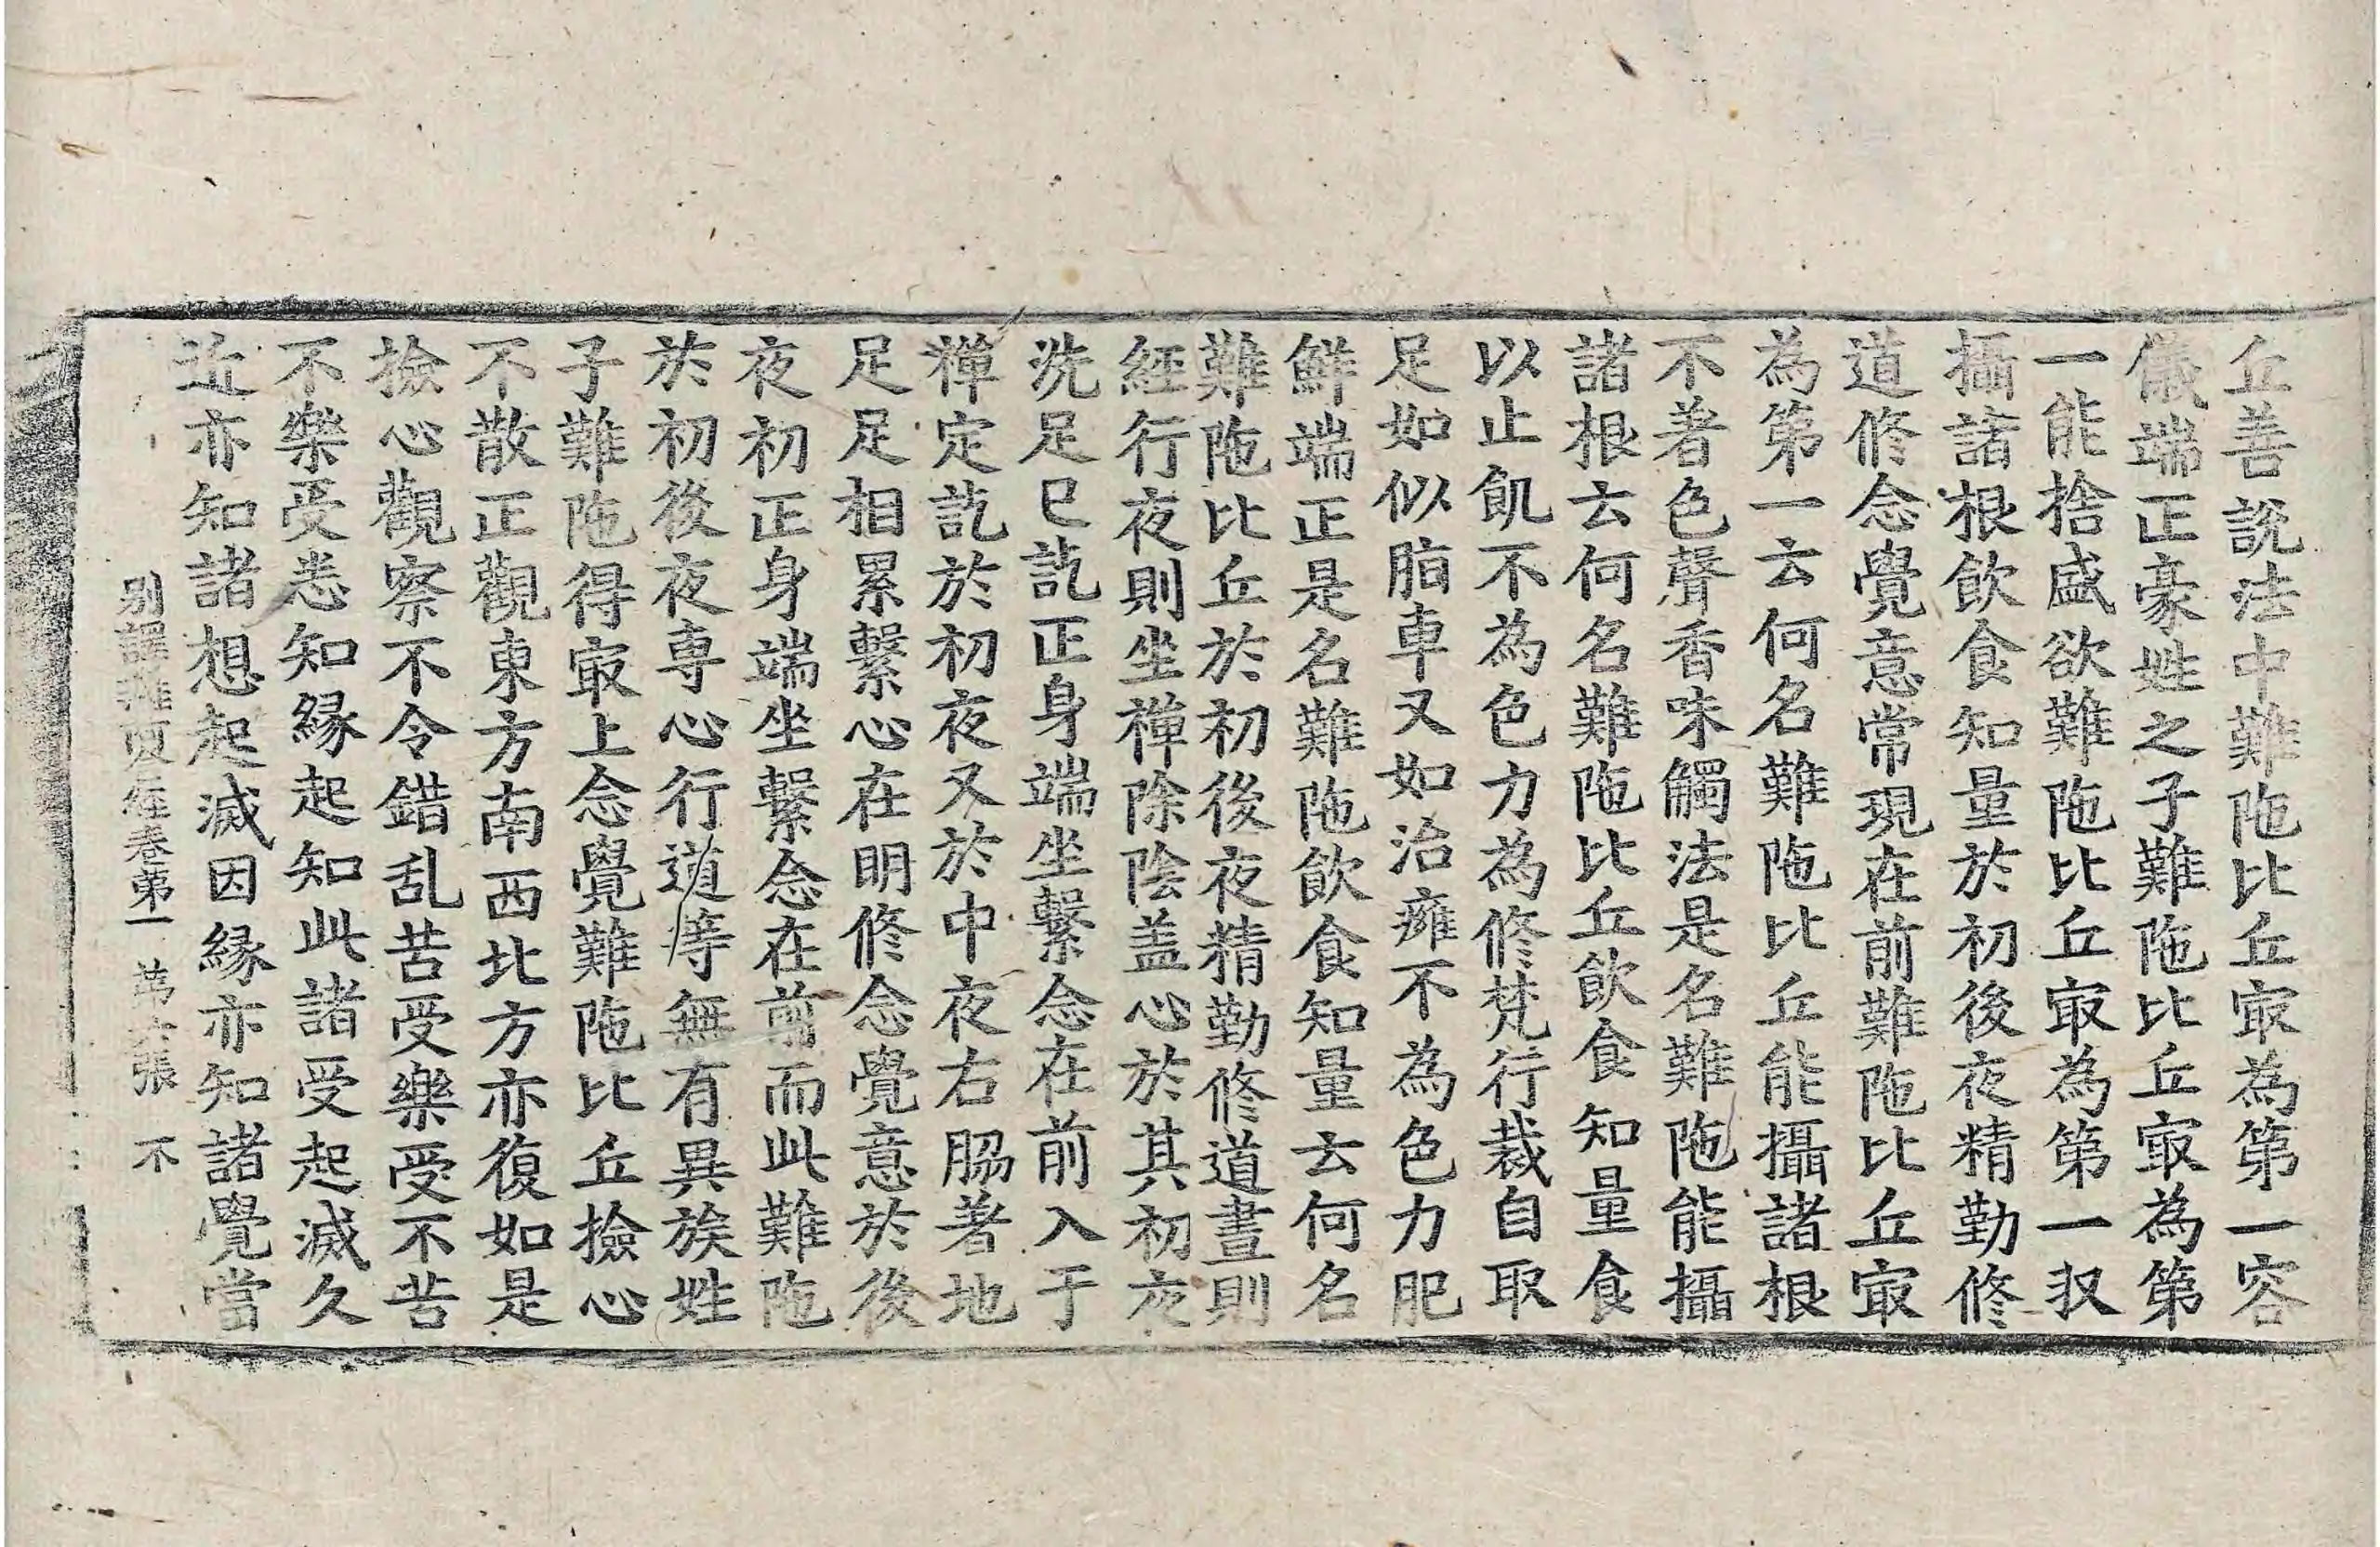 丘善說法中難陁比丘㝡為第一容
儀端正豪姓之子難陁比丘㝡為第
一能捨盛欲難陁比丘㝡為第一収
攝諸根飲食知量於初後夜精勤修
道修念覺意常現在前難陁比丘㝡
為第一云何名難陁比丘能攝諸根
不著色聲香味觸法是名難陁能攝
諸根云何名難陁比丘飲食知量食
以止飢不為色力為修梵行裁自取
足如似脂車又如治癰不為色力肥
鮮端正是名難陁飲食知量云何名
難陁比丘於初後夜精勤修道晝則
經行夜則坐禪除陰盖心於其初夜
洗足已訖正身端坐繫念在前入于
禪定訖於初夜又於中夜右脇著地
足足相累繫心在明修念覺意於後
夜初正身端坐繫念在前而此難陁
於初後夜專心行道等無有異族姓
子難陁得㝡上念覺難陁比丘撿心
不散正觀東方南西北方亦復如是
撿心觀察不令錯乱苦受樂受不苦
不樂受悉知縁起知此諸受起滅久
近亦知諸想起滅因縁亦知諸覺當
別譯雜阿含經卷第一 第六張 不